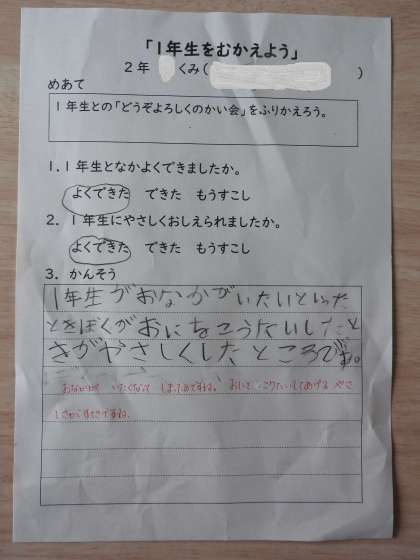 「1年生をむかえよう」
2年 くみ( )
めあて
1年生との「どうぞよろしくのかい会」をふりかえろう。
1.1年生となかよくできましたか。
よくできた できた もうすこし
2.1年生にやさしくおしえられましたか。
よくできた できた もうすこし
3.かんそう
1年生がおなかがいたいといった
ときぼくがおにをこうたいしたと
きがやさしくしたところです。
おなかが いたくなって しまったのですね。おにを こうたいしてあげる やさ
しさがすてきですね。